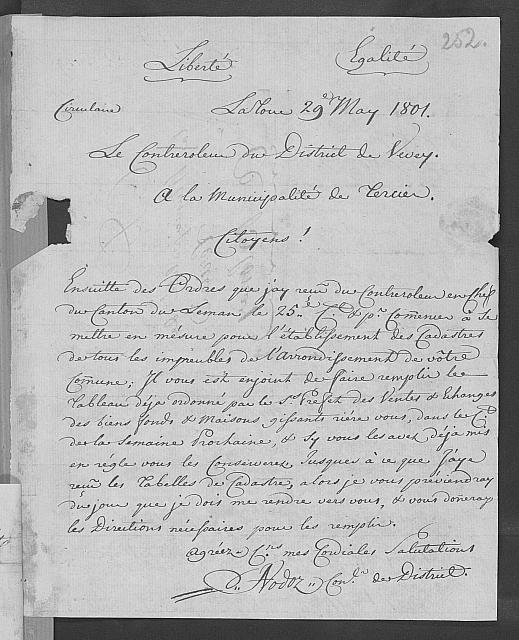 252.
Liberté Egalité
Circulaire La Tour 29e May 1801.
Le Controroleur du District de Vevey.
A la Municipalité de Tercier.
Citoyens!
Ensuitte des Ordres que j'ay reçu du Controroleur en Chef
du Canton du Leman le 25e Ct & pr Comencer à se
mettre en mésure pour l'établissement des Cadastres
de tous les immeubles de l'Arrondissement de vôtre
Comune; Il vous est enjoint de faire remplir le
Tableau déja ordonné par le Ss Prefet des Ventes & Echanges
des biens fonds & Maisons gissants riére vous, dans le Ct
de la Semaine Prochaine, & sy vous les avés déja mis
en régle vous les Conserverez Jusques à ce que J'aye
reçu les Tabelles de Cadastre, alors je vous prevendray
du jour que je dois me rendre vers vous, & vous doneray
les Directions nécessaires pour les remplir.
Agréez Cns mes Cordiales Salutations
D. Nodoz Conler de District.